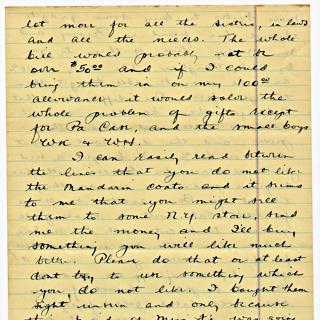 lot more for all the sisters, in laws
and all the nieces. The whole
bill would probably not be
over $50.00 and if I could
bring them in on my 100.00
allowance it would solve the
whole problem of gifts except
for Pa Case, and the small boys
WK & WH.
I can easily read between
the lines that you do not like
the Mandarin coats and it seems
to me that you might sell
them to some N.Y. store, send
me the money and I'll buy
something you will like much
better. Please do that or at least
dont try to use something which
you do not like. I bought them
sight unseen and only because